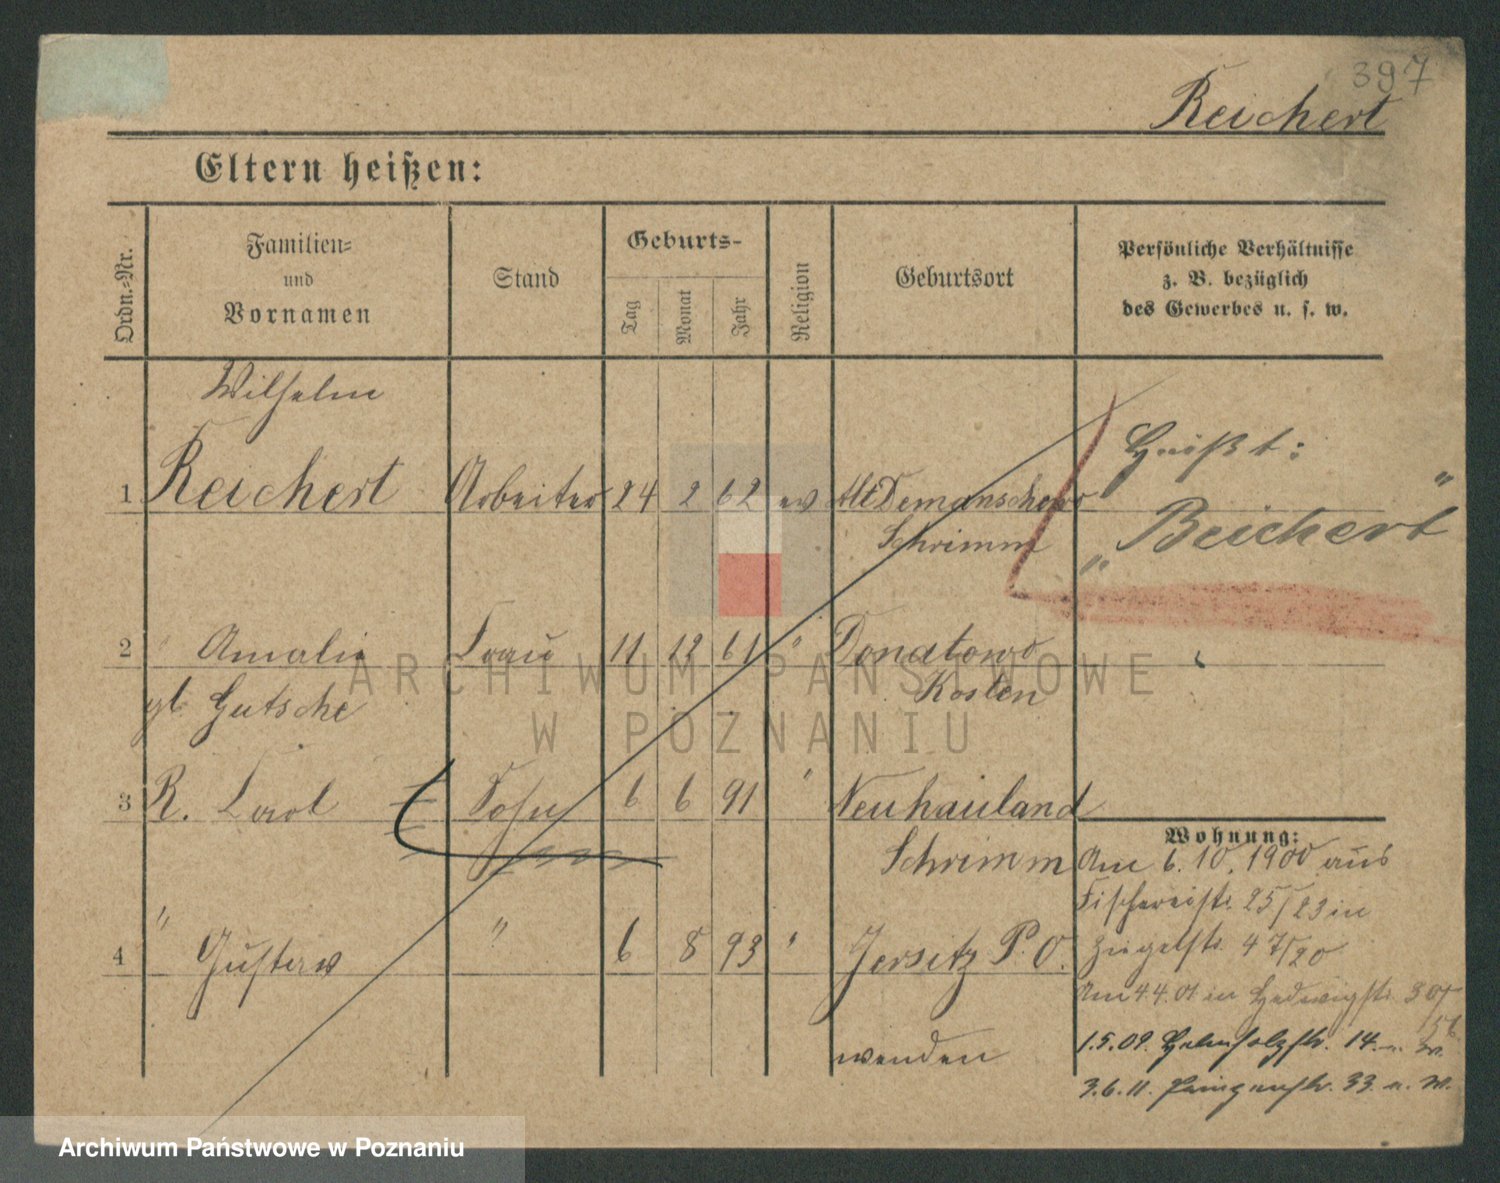 397
Reichert
Eltern heißen:
Ordn.-Nr.
Familien-
und
Vornamen
Stand
Geburts-
Tag
Monat
Jahr
Religion
Geburtsort
Persönliche Verhältnisse
z. B. bezüglich
des Gewerbes u. s. w.
Wilhelm
1 Reichert Arbeiter 24 2 62 ev Alt Demanschewo
Schrimm
Heißt:
" Beichert "
2 " Amalie Frau 11 12 61 " Donatowo
Kosten
Gutsche
3 R. Karl Sohn 6 6 91 " Neuhauland
Schrimm
4 " Gustav " 6 8 93 " Jersitz P. O.
wenden
Wohnung:
Am 6.10.1900 aus
Fischereistr. 25/23 in
Ziegelstr. 4 7/20
Am 4.4.01 in Hedwigstr.
1.5.09. 14.
3.6.11. 33. u. W.
ARCHIWUM PAŃSTWOWE
W POZNANIU
Archiwum Państwowe w Poznaniu